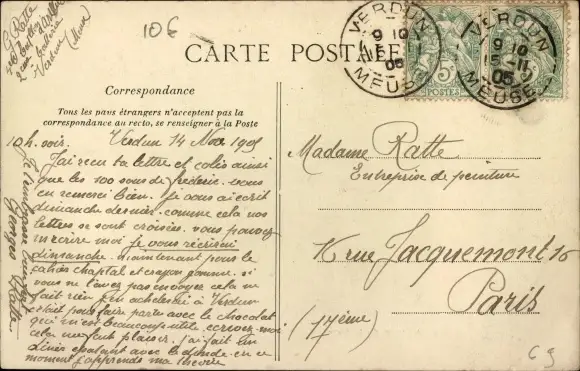 G. Ratte
Verdun Meuse
10€
CARTE POSTALE
VERDUN
9 10
15-11
05
MEUSE
5
POSTES
VERDUN
9 10
15-11
05
MEUSE
Correspondance
Tous les pays étrangers n'acceptent pas la
correspondance au recto, se renseigner à la Poste
10h. soir. Verdun 14 Nov 1905
J'ai reçu ta lettre et colis ainsi
que les 100 sous de frédéric. vous
en remercie bien. Je vous ai écrit
dimanche dernier. comme cela nos
lettres se sont croisées. vous pouvez
m'écrire moi je vous récrirai
dimanche. maintenant pour le
cahier chaptal et crayon gomme. si
vous ne l'avez pas envoyé cela ne
fait rien j'en achèterai à Verdun
était pour faire partir avec le chocolat
qui m'est beaucoup utile. écrivez-moi
cela me fait plaisir. j'ai fait un
dîner épatant avec la dinde. en ce
moment j'apprends ma théorie
Je t'embrasse bien fort
Georges Ratte
Madame Ratte
Entreprise de peinture
16 rue Jacquemont 16
Paris
(17ème)
69